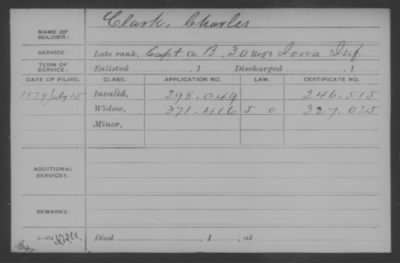 NAME OF SOLDIER: Clark, Charles
SERVICE: Late rank, Capt Co. B, 30 Iowa Inf
TERM OF SERVICE: Enlisted , 1 Discharged , 1
DATE OF FILING. CLASS. APPLICATION NO. LAW. CERTIFICATE NO.
1879 July 15 Invalid, 298.049 246.515
Widow, 371.416 5 0 327.025
Minor,
ADDITIONAL SERVICES:
REMARKS:
Died , 1 , at